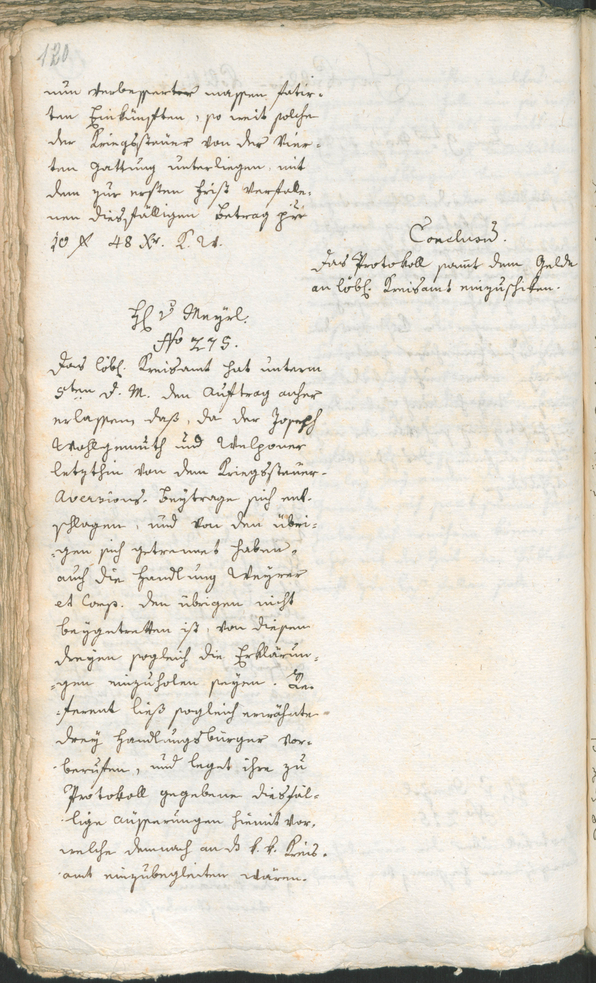 120.
nun verbesserter massen fatir-
ten Einkünften, so weit solche
der Kriegssteuer von der Vier-
ten Gattung unterliegen, mit
dem zur ersten Frist verfalle-
nen diesfälligen Betrag per
48 Xr.
Conclusū.
Das Protokoll samt dem Gelde
an löbl. Kreisamt einzuschiken.
H. v. Meyrl.
No 275.
Das löbl. Kreisamt hat unterm
5ten d. M. den Auftrag anher
erlassen, daß, da der Joseph
Wohlgemuth und Welponer
letzthin von dem Kriegssteuer-
Aversions-Beytrage sich ent-
schlagen, und von den übri-
gen sich getrennet haben,
auch die Handlung Weyrer
et Comp. den übrigen nicht
beygetretten ist, von diesen
dreyen sogleich die Erklärun-
gen einzuholen seyen. Re-
ferent ließ sogleich erwähnte
drey Handlungsbürger vor-
berufen, und leget ihre zu
Protokoll gegebene diesfäl-
lige Äusserungen hiemit vor,
welche demnach an das k. k. Kreis-
amt einzubegleiten wären.